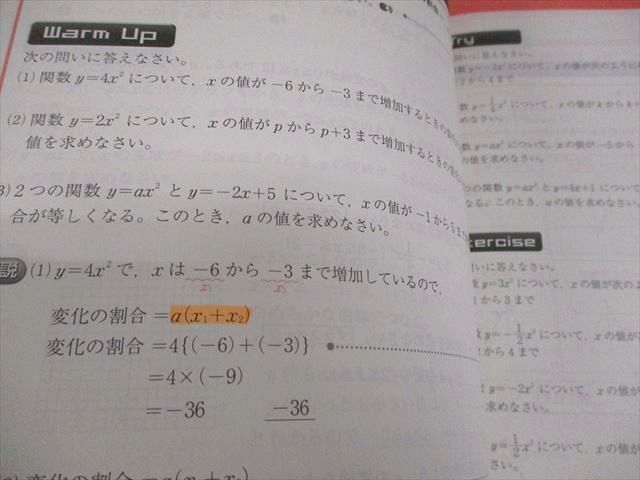 Warm Up
次の問いに答えなさい。
(1) 関数 y=4x² について，x の値が −6 から −3 まで増加するときの
(2) 関数 y=2x² について，x の値が p から p+3 まで増加するときの
値を求めなさい。
3) 2つの関数 y=ax² と y=−2x+5 について，x の値が −1 から 5 まで
合が等しくなる。このとき，a の値を求めなさい。
説 (1) y=4x² で，x は −6 から −3 まで増加しているので，
x₁ x₂
変化の割合 =a(x₁+x₂)
変化の割合 =4{(−6)+(−3)}
=4×(−9)
=−36 −36
変化の割合
ry
問いに答えなさい。
から 4 まで
めなさい。
の値を求めなさい。
つの関数 y=ax² と y=4x+1 について
なる。このとき，a の値を求めなさい
xercise
問いに答えなさい。
数 y=3x² について，x の値が次の
1 から 3 まで
数 y=−1/2x² について，x の値が
から 4 まで
数 y=−2x² について，x の値が
求めなさい。
数 y=1/2x² について，x の値が
さい。